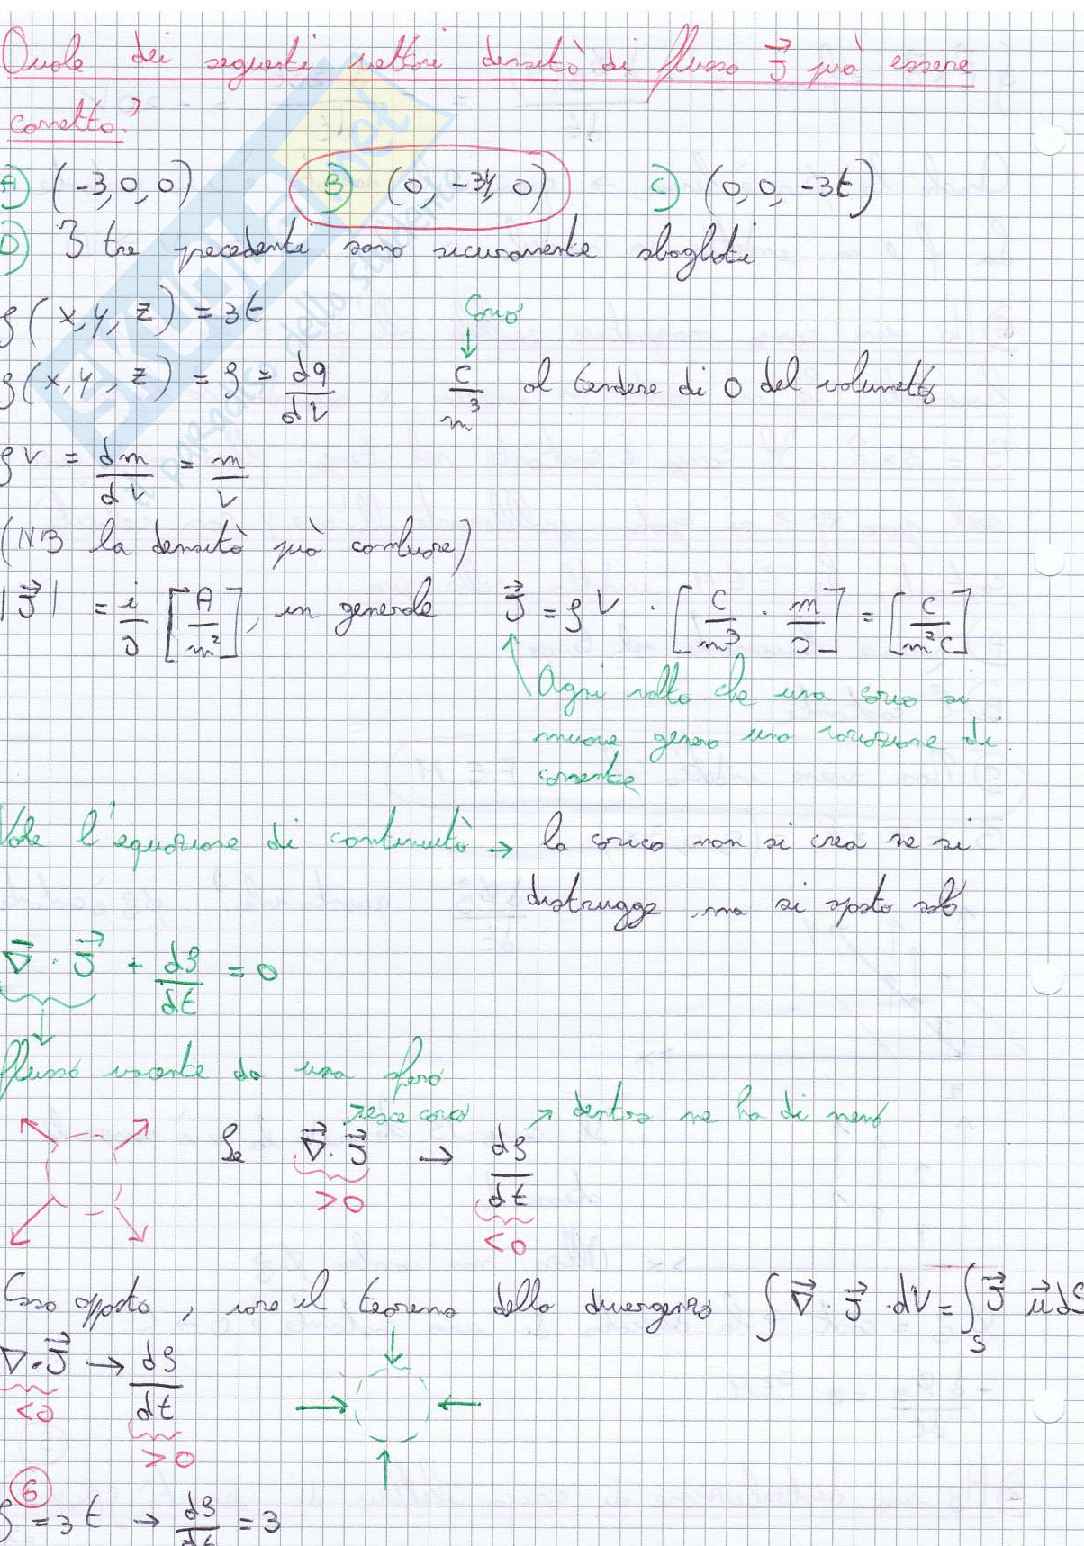 Quale dei seguenti vettori densità di flusso J⃗ può essere
corretto?
A) (-3,0,0) B) (0, -3y, 0) C) (0,0,-3t)
D) I tre precedenti sono sicuramente sbagliati
ρ(x,y,z) = 3t carica
ρ(x,y,z) = ρ = dq/dV C/m³ al tendere di 0 del volumetto
ρV = dm/dV = m/V
(NB la densità può cambiare)
|J⃗| = i/S [A/m²], in generale J⃗ = ρV · [C/m³ · m/s] = [C/m²C]
Ogni volta che una carica si
muove genera una variazione di
corrente
Vale l'equazione di continuità → la carica non si crea ne si
distrugge, ma si sposta solo
∇⃗ · J⃗ + dρ/dt = 0
flusso uscente da una sfera
esce carica → dentro ne ho di meno
Se ∇⃗ · J⃗ → dρ/dt
>0 <0
Caso opposto, uso il teorema della divergenza ∫ ∇⃗ · J⃗ · dV = ∫S J⃗ u⃗ dS
∇ · J⃗ → dρ/dt
<0 >0
6
ρ = 3t → dρ/dt = 3
SKUOLA.net
paradiso dello studente